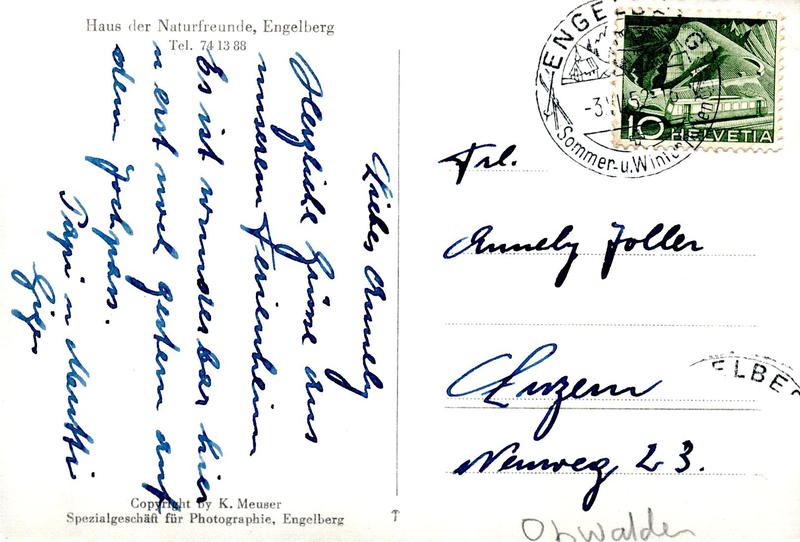 Haus der Naturfreunde, Engelberg
Tel. 74 13 88
Liebes Annely
Herzliche Grüsse aus
unserem Ferienheim
Es ist wunderbar hier
u erst noch gestern auf
dem Jochpass.
Papi u Mutti
Copyright by K. Meuser
Spezialgeschäft für Photographie, Engelberg
ENGELBERG
-3.VII.52-
Sommer- u. Winter
10 HELVETIA
Frl.
Annely Joller
Luzern
Neuweg 23.
ELBE
Obwalden